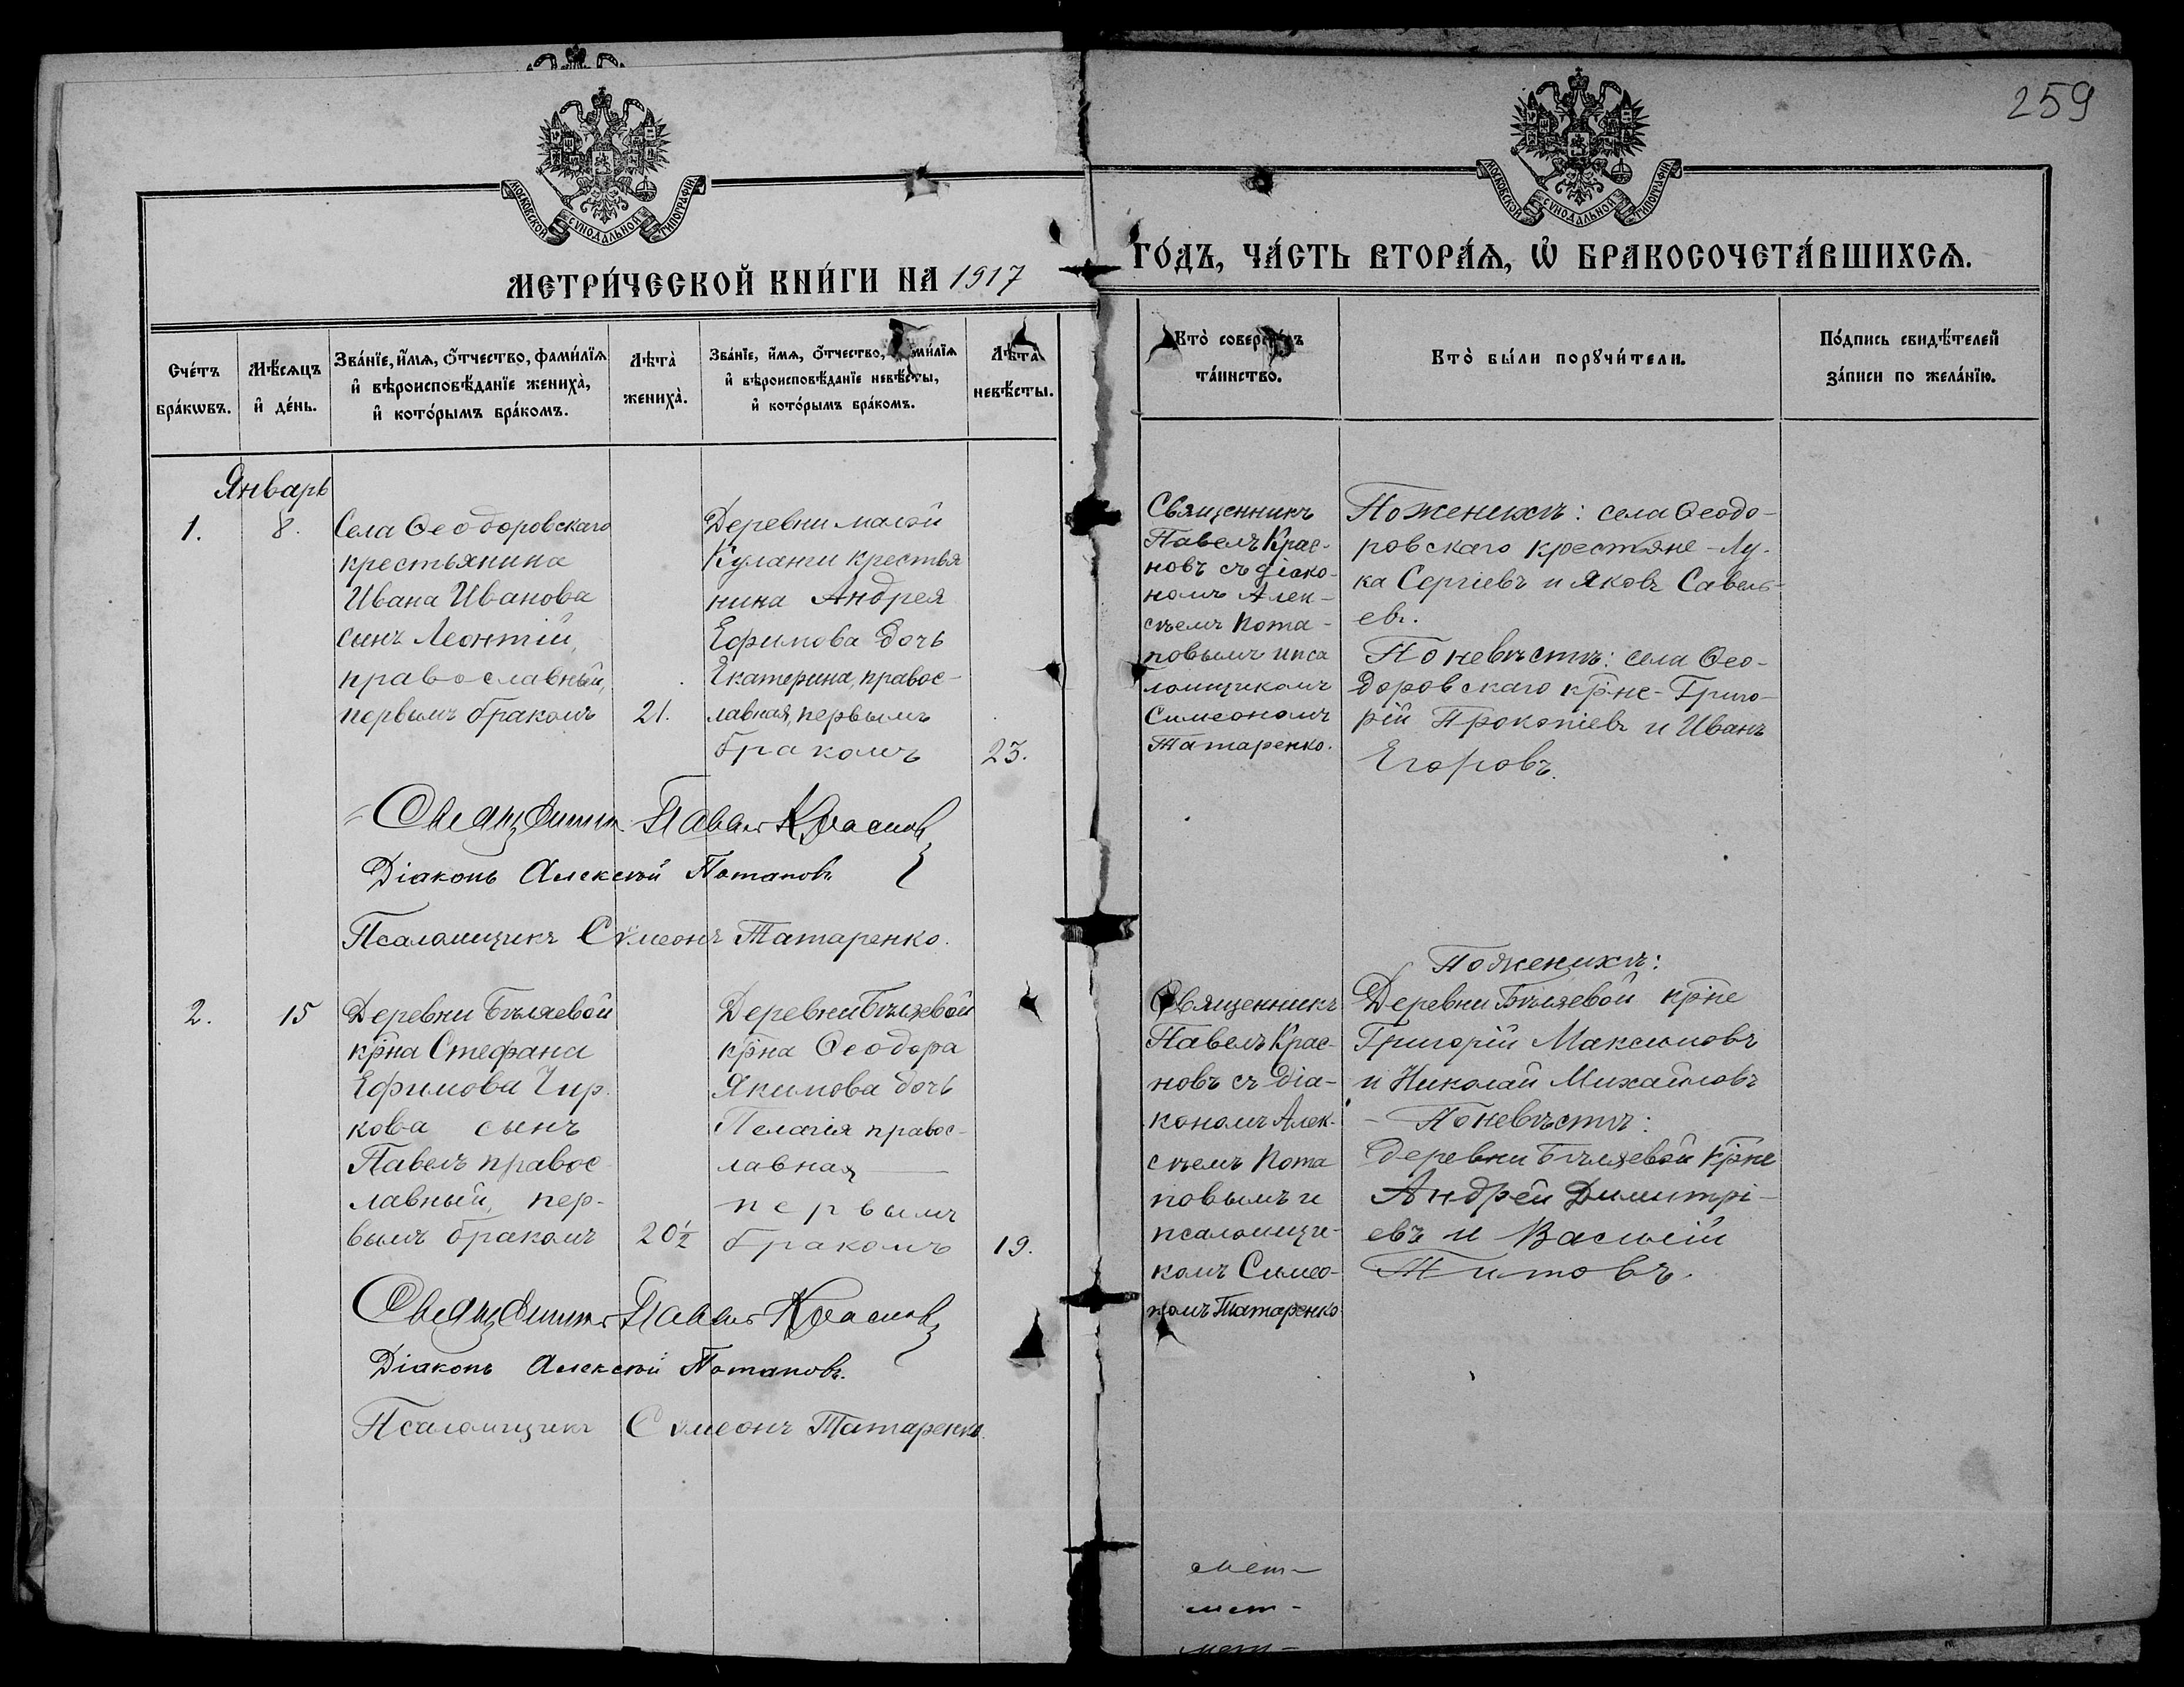 259
МОСКОВСКОЙ СѴНОДАЛЬНОЙ ТИПОГРАФІИ
МОСКОВСКОЙ СѴНОДАЛЬНОЙ ТИПОГРАФІИ
МЕТРИ́ЧЕСКОЙ КНИ́ГИ НА 1917
ГО́ДЪ, ЧА́СТЬ ВТОРА́Ѧ, Ѡ҆ БРАКОСОЧЕТА́ВШИХСѦ.
Сче́тъ
бра́кѡвъ.
Мѣ́сѧцъ
и҆ де́нь.
Зва́нїе, и҆́мѧ, ѻ҆́тчество, фами́лїѧ
и҆ вѣроисповѣ́данїе жениха̀,
и҆ кото́рымъ бра́комъ.
Лѣта̀
жениха̀.
Зва́нїе, и҆́мѧ, ѻ҆́тчество, фами́лїѧ
и҆ вѣроисповѣ́данїе невѣ́сты,
и҆ кото́рымъ бра́комъ.
Лѣта̀
невѣ́сты.
Кто̀ соверша́лъ
та́инство.
Кто̀ бы́ли порꙋчи́тели.
По́дпись свидѣ́телей
за́писи по жела́нїю.
Январь
1.
8.
Села Ѳеодоровскаго
крестьянина
Ивана Иванова
сынъ Леонтій,
православный,
первымъ бракомъ
21.
Деревни малой
Куланги крестья
нина Андрея
Ефимова дочь
Екатерина, правос-
лавная, первымъ
бракомъ
23.
Священникъ
Павелъ Крас-
новъ съ діако-
номъ Алек-
сѣемъ Пота-
повымъ и пса
ломщикомъ
Симеономъ
Татаренко.
По женихѣ: села Ѳеодо-
ровскаго крестьяне - Лу-
ка Сергіевъ и Яковъ Савель-
евъ.
По невѣстѣ: села Ѳео-
доровскаго кр̄не - Григо-
рій Прокопіевъ и Иванъ
Егоровъ.
Священникъ Павелъ Красновъ
Діаконъ Алексѣй Потаповъ
Псаломщикъ Сѵмеонъ Татаренко.
2.
15
Деревни Бѣляевой
кр̄на Стефана
Ефимова Чир-
кова сынъ
Павелъ правос
лавный, пер-
вымъ бракомъ
20½
Деревни Бѣляевой
кр̄на Ѳеодора
Якимова дочь
Пелагія правос-
лавная
первымъ
бракомъ
19.
Священникъ
Павелъ Крас-
новъ съ діа-
кономъ Алек-
сѣемъ Пота
повымъ и
псаломщи-
комъ Симео-
номъ Татаренко
По женихѣ:
Деревни Бѣляевой кр̄не
Григорій Максимовъ
и Николай Михайловъ
- По невѣстѣ:
деревни Бѣляевой кр̄не
Андрей Димитрі-
евъ и Василій
Титовъ.
Священникъ Павелъ Красновъ
Діаконъ Алексѣй Потаповъ.
Псаломщикъ Сѵмеонъ Татаренко.